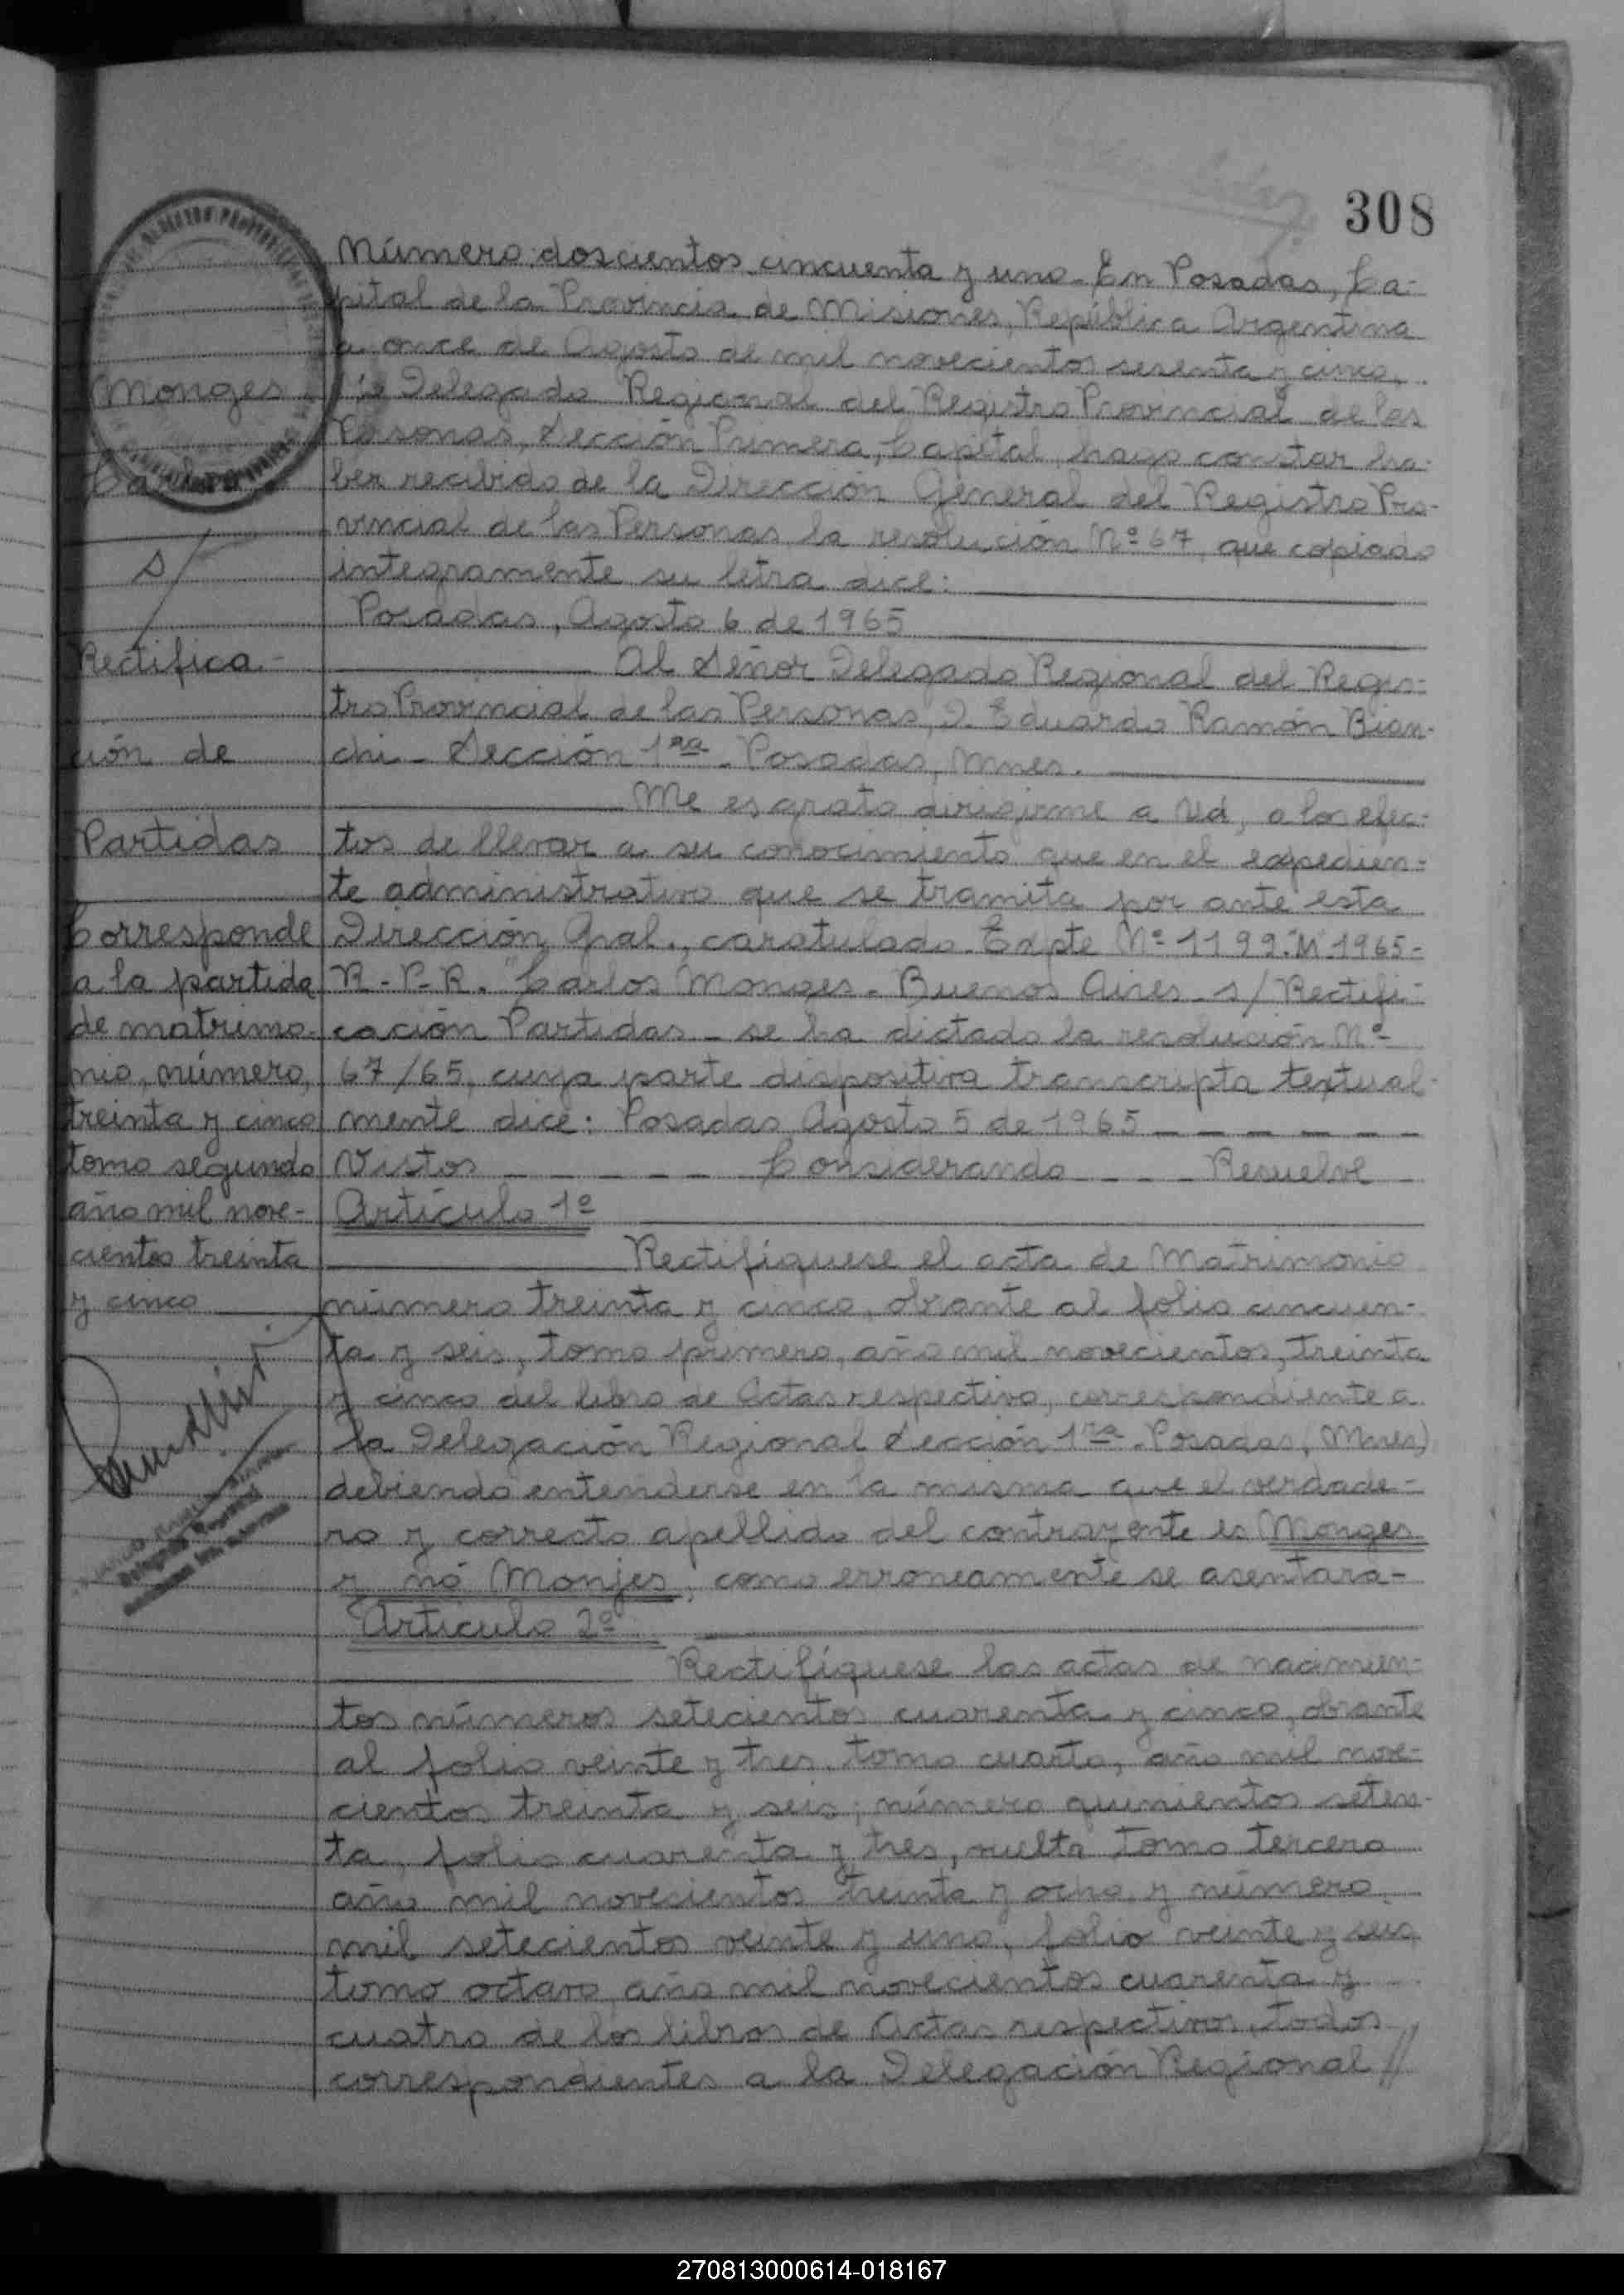 308
Monges
Carlos
s/
Rectifica-
ción de
Partidas
Corresponde
a la partida
de matrimo-
nio, número,
treinta y cinco
tomo segundo
año mil nove-
cientos treinta
y cinco
Número: doscientos cincuenta y uno - En Posadas, Ca-
pital de la Provincia de Misiones, República Argentina
a once de Agosto de mil novecientos sesenta y cinco,
Delegado Regional del Registro Provincial de las
Personas, Sección Primera, Capital, hago constar ha-
ber recibido de la Dirección General del Registro Pro-
vincial de las Personas la resolución Nº 67, que copiado
integramente su letra dice:
Posadas, Agosto 6 de 1965
Al Señor Delegado Regional del Regis-
tro Provincial de las Personas, D. Eduardo Ramón Bian-
chi - Sección 1ra - Posadas, Mnes.
Me es grato dirigirme a Ud, a los efec-
tos de llevar a su conocimiento que en el expedien-
te administrativo que se tramita por ante esta
Dirección Gral., caratulado Expte Nº 1199-"M"-1965-
R-P-R. "Carlos Monges - Buenos Aires - s/ Rectifi-
cación Partidas - se ha dictado la resolución Nº
67/65, cuya parte dispositiva transcripta textual-
mente dice: Posadas Agosto 5 de 1965 - - - - - -
Vistos - - - - - Considerando - - - - Resuelve
Artículo 1º
Rectifíquese el acta de Matrimonio
número treinta y cinco, obrante al folio cincuen-
ta y seis, tomo primero, año mil novecientos, treinta
y cinco del libro de Actas respectivo, correspondiente a
la Delegación Regional Sección 1ra - Posadas, (Mnes)
debiendo entenderse en la misma que el verdade-
ro y correcto apellido del contrayente es Monges
y nó Monjes, como erroneamente se asentara-
Artículo 2º
Rectifíquese las actas de nacimien-
tos números setecientos cuarenta y cinco, obrante
al folio veinte y tres, tomo cuarto, año mil nove-
cientos treinta y seis; número quinientos seten-
ta, folio cuarenta y tres, vuelta tomo tercero
año mil novecientos treinta y ocho y número
mil setecientos veinte y uno, folio veinte y seis
tomo octavo año mil novecientos cuarenta y
cuatro de los libros de Actas respectivos, todos
correspondientes a la Delegación Regional //
270813000614-018167